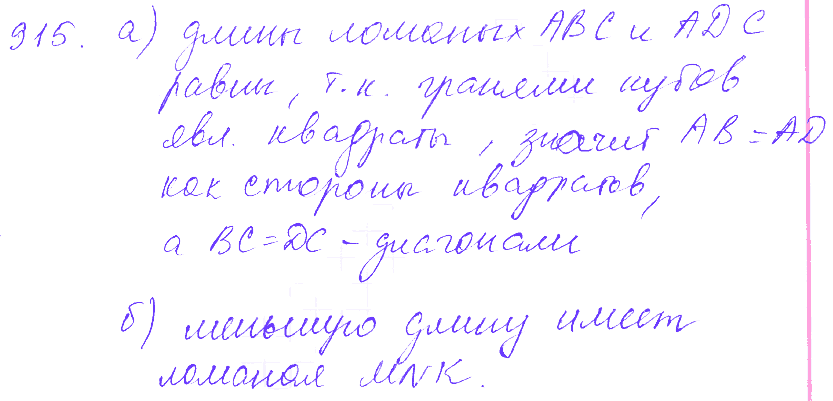 915. а) длины ломаных ABC и ADC
равны, т.к. гранями кубов
явл. квадраты, значит AB = AD
как стороны квадратов,
а BC = DC – диагонали
б) меньшую длину имеет
ломаная MNK.